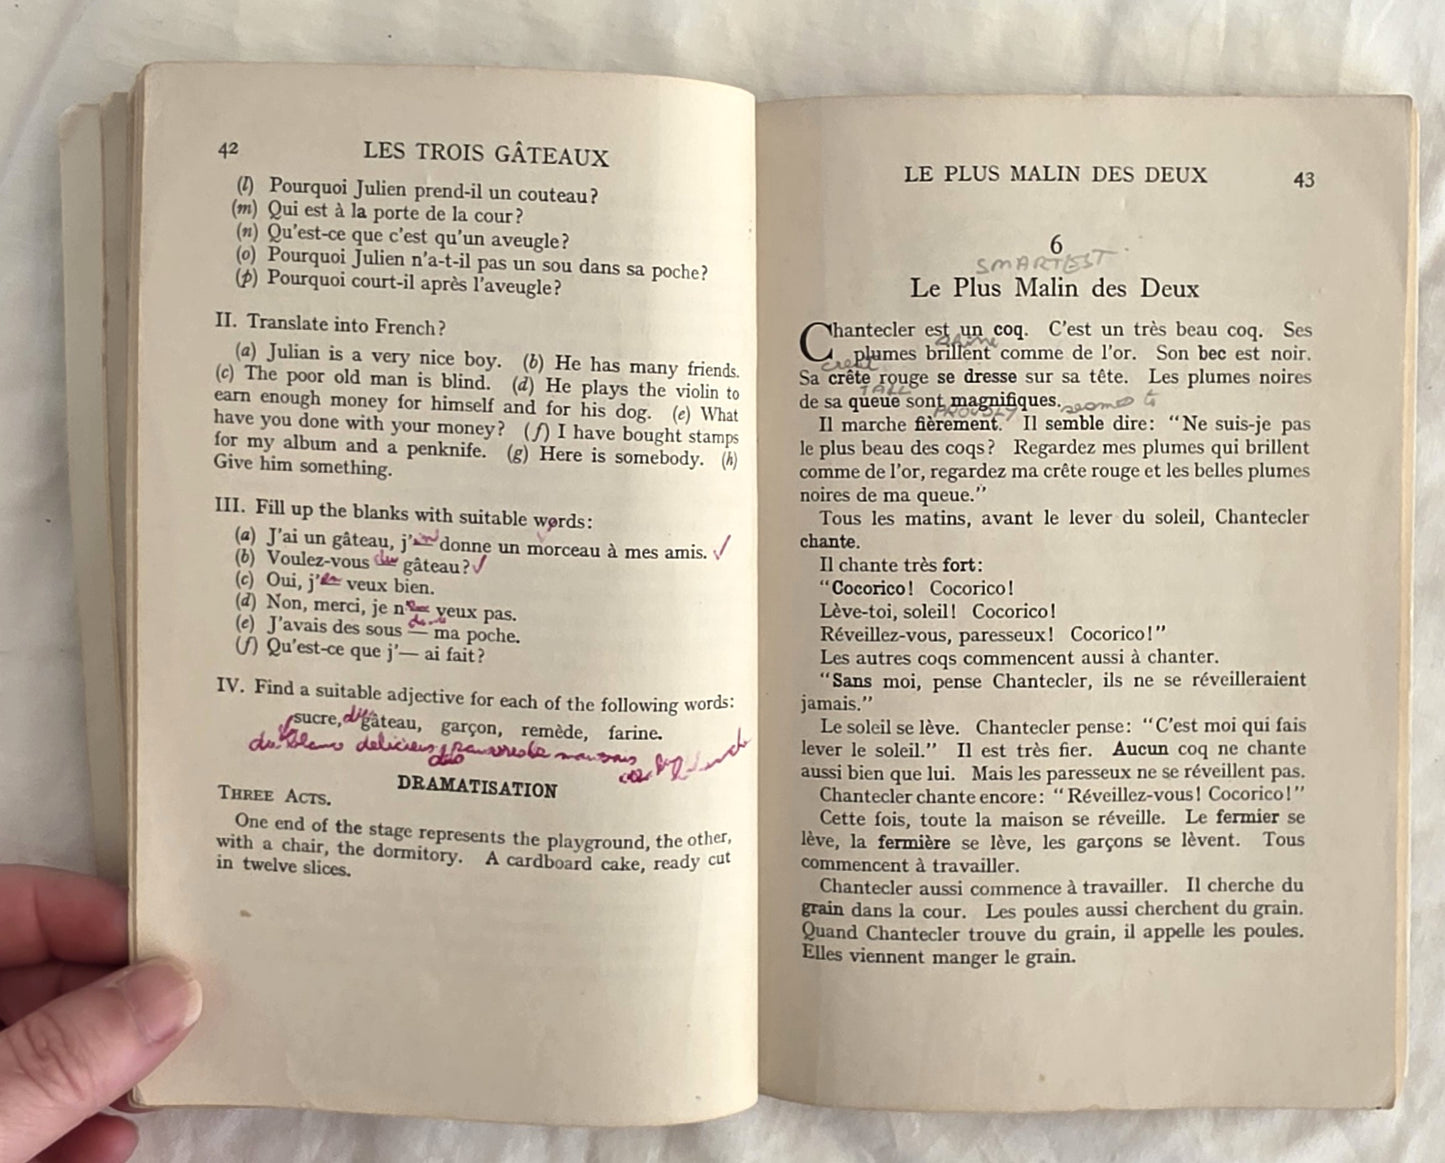 42 LES TROIS GÂTEAUX
(l) Pourquoi Julien prend-il un couteau?
(m) Qui est à la porte de la cour?
(n) Qu'est-ce que c'est qu'un aveugle?
(o) Pourquoi Julien n'a-t-il pas un sou dans sa poche?
(p) Pourquoi court-il après l'aveugle?
II. Translate into French?
(a) Julian is a very nice boy. (b) He has many friends.
(c) The poor old man is blind. (d) He plays the violin to
earn enough money for himself and for his dog. (e) What
have you done with your money? (f) I have bought stamps
for my album and a penknife. (g) Here is somebody. (h)
Give him something.
III. Fill up the blanks with suitable words:
(a) J'ai un gâteau, j' donne un morceau à mes amis. ✓
(b) Voulez-vous du gâteau? ✓
(c) Oui, j' veux bien.
(d) Non, merci, je n' veux pas.
dans
(e) J'avais des sous — ma poche.
(f) Qu'est-ce que j'— ai fait?
IV. Find a suitable adjective for each of the following words:
sucre, gâteau, garçon, remède, farine.
blanc délicieux mauvais
DRAMATISATION
THREE ACTS.
One end of the stage represents the playground, the other,
with a chair, the dormitory. A cardboard cake, ready cut
in twelve slices.
LE PLUS MALIN DES DEUX 43
6
SMARTEST
Le Plus Malin des Deux
Chantecler est un coq. C'est un très beau coq. Ses
shine
plumes brillent comme de l'or. Son bec est noir.
crest
Sa crête rouge se dresse sur sa tête. Les plumes noires
TAIL
de sa queue sont magnifiques.
PROUDLY seems to
Il marche fièrement. Il semble dire: "Ne suis-je pas
le plus beau des coqs? Regardez mes plumes qui brillent
comme de l'or, regardez ma crête rouge et les belles plumes
noires de ma queue."
Tous les matins, avant le lever du soleil, Chantecler
chante.
Il chante très fort:
"Cocorico! Cocorico!
Lève-toi, soleil! Cocorico!
Réveillez-vous, paresseux! Cocorico!"
Les autres coqs commencent aussi à chanter.
"Sans moi, pense Chantecler, ils ne se réveilleraient
jamais."
Le soleil se lève. Chantecler pense: "C'est moi qui fais
lever le soleil." Il est très fier. Aucun coq ne chante
aussi bien que lui. Mais les paresseux ne se réveillent pas.
Chantecler chante encore: "Réveillez-vous! Cocorico!"
Cette fois, toute la maison se réveille. Le fermier se
lève, la fermière se lève, les garçons se lèvent. Tous
commencent à travailler.
Chantecler aussi commence à travailler. Il cherche du
grain dans la cour. Les poules aussi cherchent du grain.
Quand Chantecler trouve du grain, il appelle les poules.
Elles viennent manger le grain.